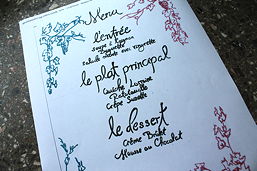 Menu
l'entrée
Soupe à l'oignon
Baguette
Salade verte avec vinaigrette
le plat principal
Quiche Lorraine
Ratatouille
Crêpe Suzette
le dessert
Crème Brûlée
Mousse au Chocolat